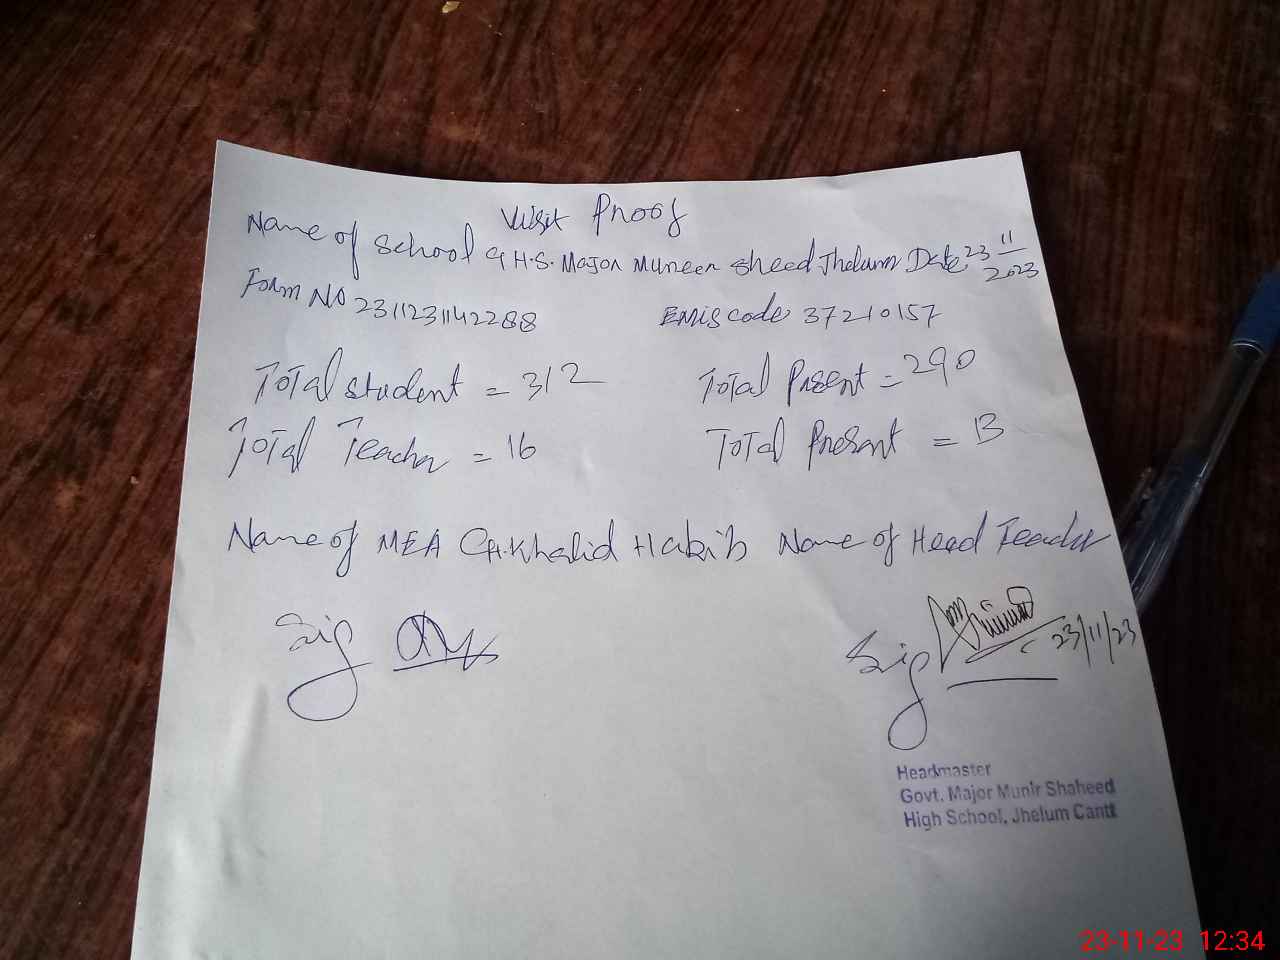 Visit Proof
Name of School G.H.S. Major Muneer Sheed Jhelum Date 23/11/2023
Form No 2311231142288 EMIS code 37210157
Total student = 312 Total Prsent = 290
Total Teacher = 16 Total Present = 13
Name of MEA CH.Khalid Habib Name of Head Teacher
Sig Sig 23/11/23
Headmaster
Govt. Major Munir Shaheed
High School, Jhelum Cantt
23-11-23 12:34